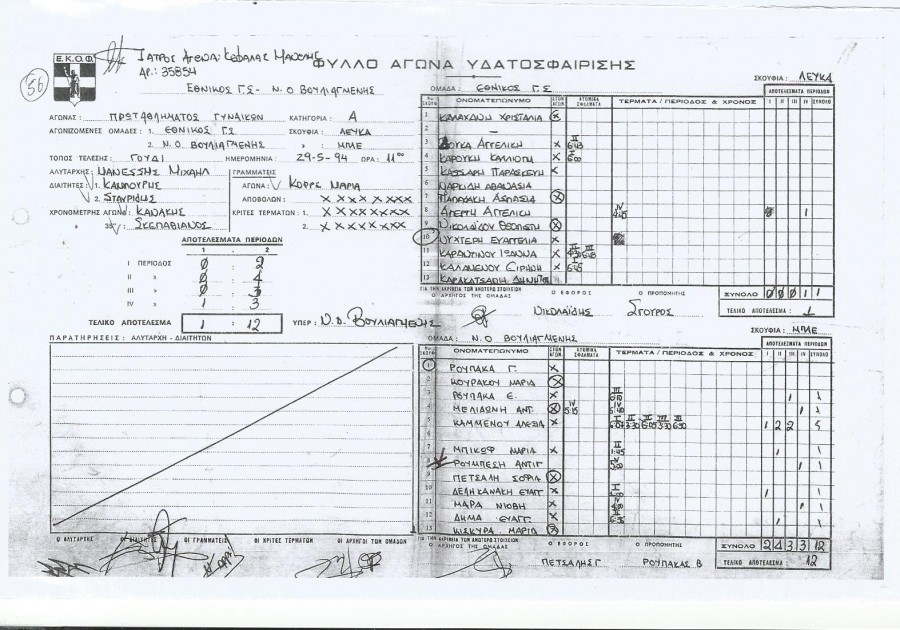 Ε.Κ.Ο.Φ.
ΙΑΤΡΟΣ ΑΓΩΝΑ: ΚΕΦΑΛΑΣ
ΑΡ.: 35854
56
ΦΥΛΛΟ ΑΓΩΝΑ ΥΔΑΤΟΣΦΑΙΡΙΣΗΣ
ΕΘΝΙΚΟΣ Γ.Σ - Ν.Ο ΒΟΥΛΙΑΓΜΕΝΗΣ
ΑΓΩΝΑΣ: ΠΡΩΤΑΘΛΗΜΑΤΟΣ ΓΥΝΑΙΚΩΝ ΚΑΤΗΓΟΡΙΑ: Α
ΑΓΩΝΙΖΟΜΕΝΕΣ ΟΜΑΔΕΣ: 1. ΕΘΝΙΚΟΣ Γ.Σ ΣΚΟΥΦΙΑ: ΛΕΥΚΑ
2. Ν.Ο ΒΟΥΛΙΑΓΜΕΝΗΣ » ΜΠΛΕ
ΤΟΠΟΣ ΤΕΛΕΣΗΣ: ΓΟΥΔΙ ΗΜΕΡΟΜΗΝΙΑ: 29-5-94 ΩΡΑ: 11⁰⁰
ΑΛΥΤΑΡΧΗΣ: ΜΑΝΕΣΣΗΣ ΜΙΧΑΗΛ ΓΡΑΜΜΑΤΕΙΣ
ΔΙΑΙΤΗΤΕΣ: 1. ΚΑΜΠΟΥΡΗΣ ΑΓΩΝΑ: ΜΑΡΙΑ
2. ΣΤΑΥΡΙΔΗΣ ΑΠΟΒΟΛΩΝ: x x x x x x x
ΧΡΟΝΟΜΕΤΡΗΣ ΑΓΩΝΑ: ΚΑΝΑΚΗΣ ΚΡΙΤΕΣ ΤΕΡΜΑΤΩΝ: 1. x x x x x x x
» ΣΚΕΠΑΒΙΑΝΟΣ 2. x x x x x x x
ΑΠΟΤΕΛΕΣΜΑΤΑ ΠΕΡΙΟΔΩΝ
1 . 2
Ι ΠΕΡΙΟΔΟΣ 0 : 2
ΙΙ » 0 : 4
ΙΙΙ » 0 : 3
IV » 1 : 3
ΤΕΛΙΚΟ ΑΠΟΤΕΛΕΣΜΑ 1 : 12 ΥΠΕΡ: Ν.Ο. ΒΟΥΛΙΑΓΜΕΝΗΣ
ΠΑΡΑΤΗΡΗΣΕΙΣ: ΑΛΥΤΑΡΧΗ - ΔΙΑΙΤΗΤΩΝ
Ο ΑΛΥΤΑΡΧΗΣ ΟΙ ΔΙΑΙΤΗΤΕΣ ΟΙ ΓΡΑΜΜΑΤΕΙΣ ΟΙ ΚΡΙΤΕΣ ΤΕΡΜΑΤΩΝ ΟΙ ΑΡΧΗΓΟΙ ΤΩΝ ΟΜΑΔΩΝ
ΣΚΟΥΦΙΑ: ΛΕΥΚΑ
ΟΜΑΔΑ: ΕΘΝΙΚΟΣ Γ.Σ
ΑΠΟΤΕΛΕΣΜΑΤΑ ΠΕΡΙΟΔΩΝ
ΟΝΟΜΑΤΕΠΩΝΥΜΟ ΑΤΟΜΙΚΑ ΣΦΑΛΜΑΤΑ ΤΕΡΜΑΤΑ / ΠΕΡΙΟΔΟΣ & ΧΡΟΝΟΣ Ι ΙΙ ΙΙΙ IV ΣΥΝΟΛΟ
1 ΚΑΛΑΧΑΝΗ x
2 —
3 ΑΓΓΕΛΙΚΗ x II 6:43
4 ΚΑΡΟΥΚΗ ΚΑΛΛΙΟΠΗ x
5 ΚΑΣΣΑΡΗ ΠΑΡΑΣΚΕΥΗ x
6 ΑΘΑΝΑΣΙΑ
7 ΑΣΠΑΣΙΑ x
8 ΑΓΓΕΛΙΚΗ x IV 4:45 1
9 ΝΙΚΟΛΑΙΔΟΥ ΘΕΟΠΙΣΤΗ x
10 ΝΥΧΤΕΡΗ ΕΥΑΓΓΕΛΙΑ x
11 ΚΑΡΑΝΤΙΝΟΥ ΙΩΑΝΝΑ x
12 ΕΙΡΗΝΗ x 6:45
13 ΚΑΡΑΚΑΤΣΑΝΗ
ΓΙΑ ΤΗΝ ΑΚΡΙΒΕΙΑ ΤΩΝ ΑΝΩΤΕΡΩ ΣΤΟΙΧΕΙΩΝ
Ο ΑΡΧΗΓΟΣ ΤΗΣ ΟΜΑΔΑΣ Ο ΕΦΟΡΟΣ Ο ΠΡΟΠΟΝΗΤΗΣ ΣΥΝΟΛΟ 0 0 0 1 1
ΝΙΚΟΛΑΙΔΗΣ ΤΕΛΙΚΟ ΑΠΟΤΕΛΕΣΜΑ: 1
ΣΚΟΥΦΙΑ: ΜΠΛΕ
ΟΜΑΔΑ: Ν.Ο ΒΟΥΛΙΑΓΜΕΝΗΣ
ΑΠΟΤΕΛΕΣΜΑΤΑ ΠΕΡΙΟΔΩΝ
ΟΝΟΜΑΤΕΠΩΝΥΜΟ ΑΤΟΜΙΚΑ ΣΦΑΛΜΑΤΑ ΤΕΡΜΑΤΑ / ΠΕΡΙΟΔΟΣ & ΧΡΟΝΟΣ Ι ΙΙ ΙΙΙ IV ΣΥΝΟΛΟ
1 ΡΟΥΠΑΚΑ Γ. x
2 ΚΟΥΡΑΚΟΥ ΜΑΡΙΑ x
3 ΡΟΥΠΑΚΑ Ε. x III 1 1
4 ΜΕΛΙΔΩΝΗ ΑΝΤ. x IV 5:15 IV 1 1
5 ΚΑΜΜΕΝΟΥ ΑΛΕΞΙΑ x 1 2 2 5
7 ΜΠΙΚΩΦ ΜΑΡΙΑ x II 1:45 1 1
8 ΡΟΥΜΠΕΣΗ ΑΝΤΙΓ x 1 1
9 ΠΕΤΣΑΛΗ ΣΟΦΙΑ x
10 ΔΕΛΗΚΑΝΑΚΗ ΕΥΑΓΓ x 1 1
11 ΜΑΡΑ ΝΙΟΒΗ x 1 1
12 ΔΗΜΑ ΕΥΑΓΓ. x 1 1
13 ΚΙΣΚΥΡΑ ΜΑΡΙΑ x
ΓΙΑ ΤΗΝ ΑΚΡΙΒΕΙΑ ΤΩΝ ΑΝΩΤΕΡΩ ΣΤΟΙΧΕΙΩΝ
Ο ΑΡΧΗΓΟΣ ΤΗΣ ΟΜΑΔΑΣ Ο ΕΦΟΡΟΣ Ο ΠΡΟΠΟΝΗΤΗΣ ΣΥΝΟΛΟ 2 4 3 3 12
ΠΕΤΣΑΛΗΣ Γ ΡΟΥΠΑΚΑΣ Β ΤΕΛΙΚΟ ΑΠΟΤΕΛΕΣΜΑ: 12